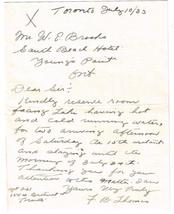 Toronto July 10/33
X
Mr W E Brooks
South Beach Hotel
Young's Point
Ont
Dear Sir:-
Kindly reserve room
facing Lake having hot
and Cold running water,
for two arriving afternoon
of Saturday
and staying until the
morning of July 24th.
Thanking you for your
attention
Yours Very Truly
F B Thomas